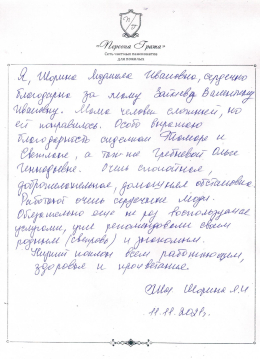 «Первая Грата»
Сеть частных пансионатов
для пожилых
Я Шорина Людмила Ивановна, сердечно
благодарна за маму Зайцеву Валентину
Ивановну. Мама человек сложный, но
ей понравилось. Особо выражаю
благодарность сиделкам Тамаре и
Светлане, а так-же Гребневой Ольге
Геннадьевне. Очень спокойная,
доброжелательная, домашняя обстановка.
Работают очень сердечные люди.
Обязательно еще не раз воспользуемся
услугами, уже рекомендовали своим
родным (свекровь) и знакомым.
Низкий поклон всем работающим,
здоровья и процветания.
Шорина Л.И
11.11.2021г.